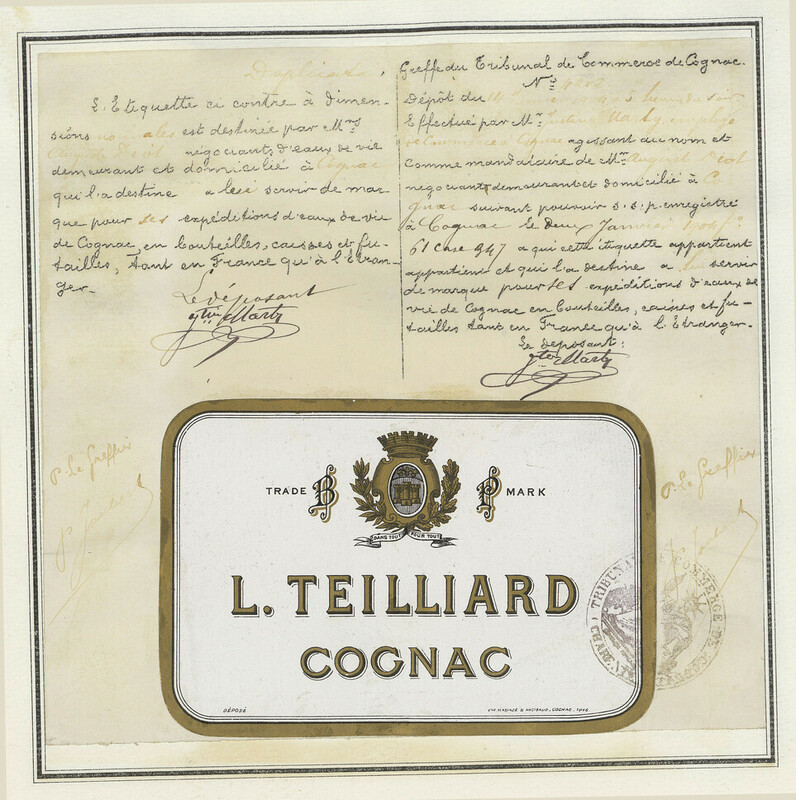 Duplicata.
L'Etiquette ci contre à dimen-
sions normales est destinée par Mr
négociant d'eaux de vie
demeurant et domicilié à Cognac
qui l'a destine a lui servir de mar
que pour ses expéditions d'eaux de vie
de Cognac, en bouteilles, caisses et fu-
tailles, tant en France qu'à l'étran-
ger.
Le déposant
Greffe du Tribunal de Commerce de Cognac.
No
Dépôt du
Effectué par Mr
agissant au nom et
comme mandataire de Mr August
négociant demeurant et domicilié à Co
gnac suivant pouvoir s.s.p. enregistré
à Cognac le deux Janvier
61 case 947 a qui cette étiquette appartient
appartient et qui l'a destine a lui servir
de marque pour ses expéditions d'eaux de
vie de Cognac en bouteilles, caisses et fu-
tailles tant en France qu'à l'Etranger.
Le déposant:
P. Le Greffier
P. Le Greffier
TRADE B P MARK
DANS TOUT POUR TOUT
L. TEILLIARD
COGNAC
DÉPOSÉ
TRIBUNAL DE COMMERCE DE COGNAC